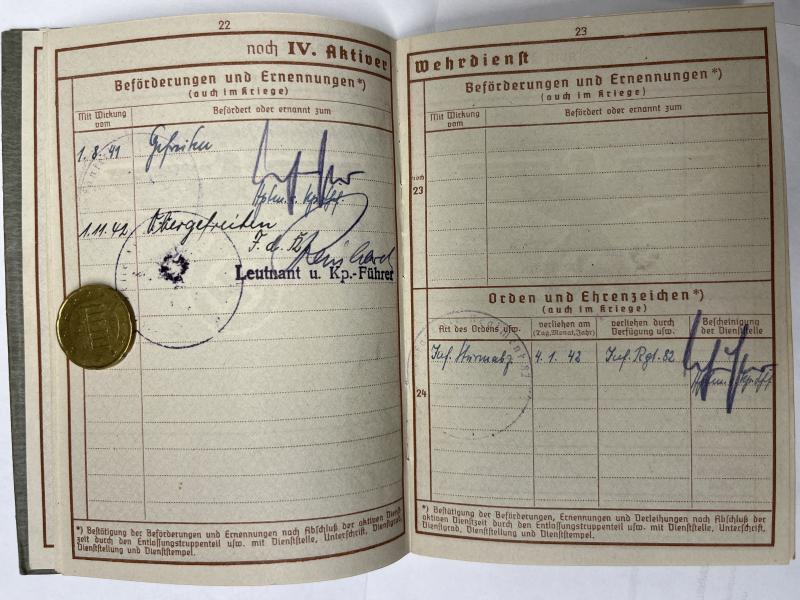 22
noch IV. Aktiver
Beförderungen und Ernennungen*)
(auch im Kriege)
Mit Wirkung vom
Befördert oder ernannt zum
1.8.41 Gefreiten
Hptm. u. Kp.Chef
1.11.42 Obergefreiten
F. d. R.
Reinhard
Leutnant u. Kp.-Führer
*) Bestätigung der Beförderungen und Ernennungen nach Abschluß der aktiven Dienst-
zeit durch den Entlassungstruppenteil usw. mit Dienststelle, Unterschrift, Dienstgrad,
Dienststellung und Dienststempel.
23
Wehrdienst
Beförderungen und Ernennungen*)
(auch im Kriege)
Mit Wirkung vom
Befördert oder ernannt zum
noch
23
Orden und Ehrenzeichen*)
(auch im Kriege)
Art des Ordens usw.
verliehen am (Tag, Monat, Jahr)
verliehen durch Verfügung usw.
Bescheinigung der Dienststelle
Inf. Sturmabz. 4.1.42 Inf. Rgt. 82
24
*) Bestätigung der Beförderungen, Ernennungen und Verleihungen nach Abschluß der
aktiven Dienstzeit durch den Entlassungstruppenteil usw. mit Dienststelle, Unterschrift,
Dienstgrad, Dienststellung und Dienststempel.